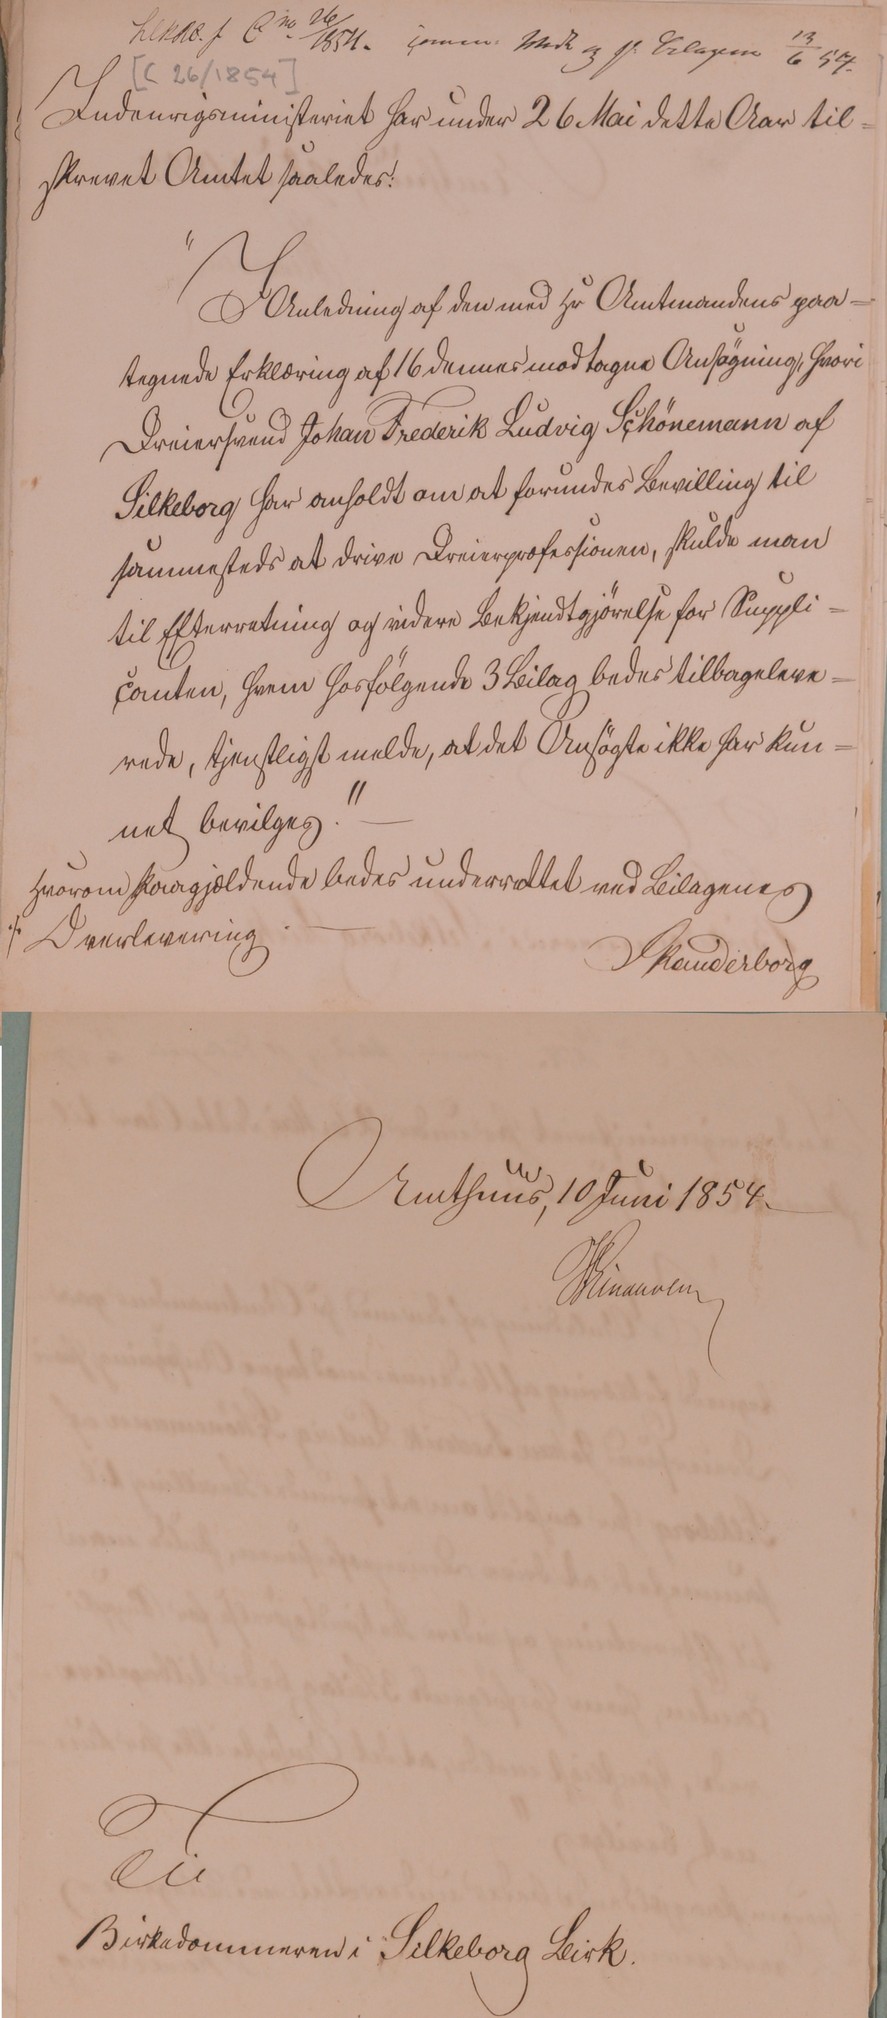 C no 26/1854. 13/6 54.
[C 26/1854]
Indenrigsministeriet har under 26 Mai dette Aar til=
skrevet Amtet saaledes:
"I Anledning af den med Hr Amtmandens paa=
tegnede Erklæring af 16 dennes modtagne Ansøgning, hvori
Dreiersvend Johan Frederik Ludvig Schönemann af
Silkeborg har anholdt om at forundes Bevilling til
sammesteds at drive Dreierprofessionen, skulde man
til Efterretning og videre Bekjendtgjörelse for Suppli=
canten, hvem hosfölgende 3 Bilag bedes tilbageleve=
rede, tjenstligst melde, at det Ansögte ikke har kun=
net bevilges."—
Hvorom Paagjældende bedes underrettet ved Bilagenes
⁒ Overlevering.—
Skanderborg
Amthuus, 10 Juni 1854.
Til
Birkedommeren i Silkeborg Birk.